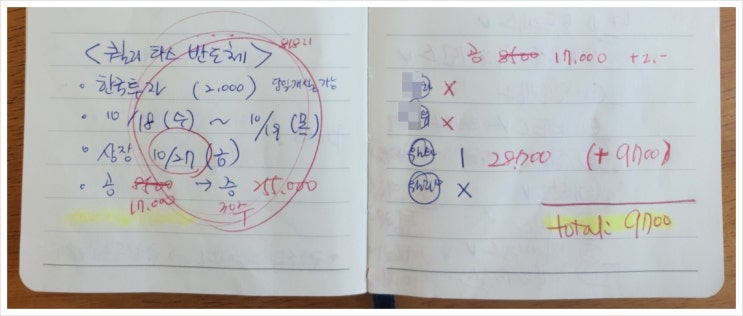 <퀄리타스 반도체>
· 한국투자 (2,000) 당일개설가능
· 10/18 (수) ~ 10/19 (목)
· 상장 10/27 (금)
· 공 8500 → 증 255,000
17,000 30주
공 8500 17,000 +2.-
X
X
1 28,700 (+9,700)
X
total: 9,700